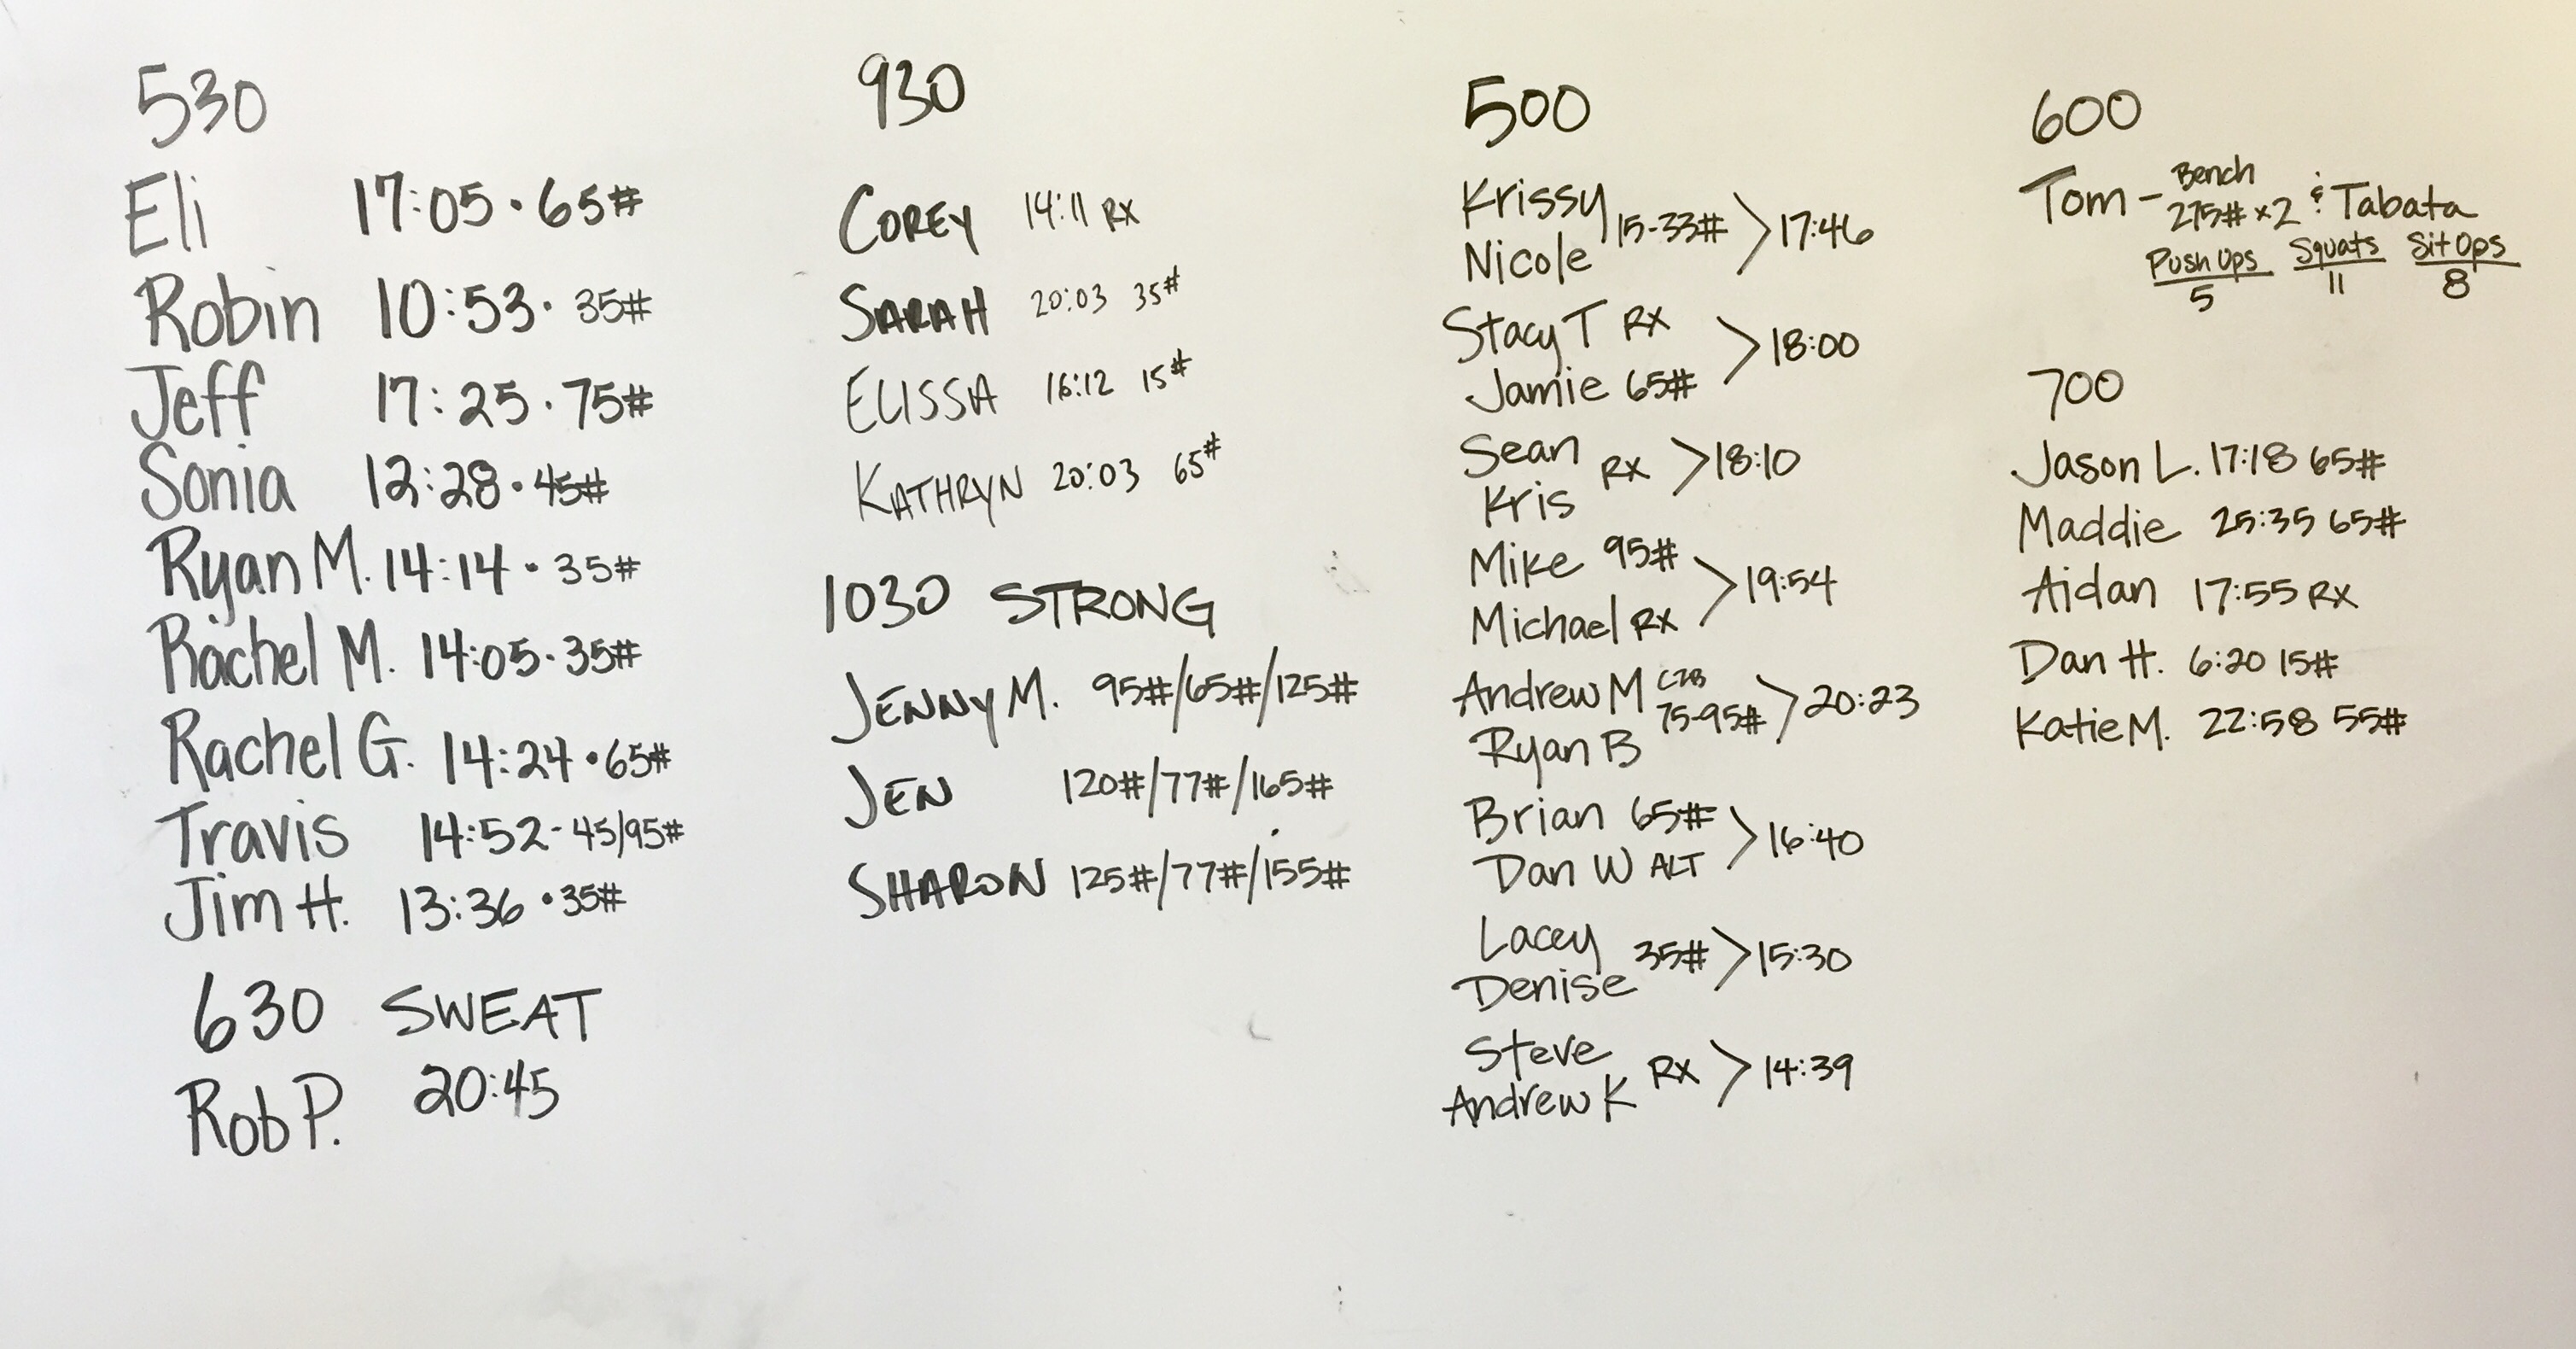 530
Eli 17:05 · 65#
Robin 10:53 · 35#
Jeff 17:25 · 75#
Sonia 12:28 · 45#
Ryan M. 14:14 · 35#
Rachel M. 14:05 · 35#
Rachel G. 14:24 · 65#
Travis 14:52 - 45/95#
Jim H. 13:36 · 35#
630 SWEAT
Rob P. 20:45
930
COREY 14:11 RX
SARAH 20:03 35#
ELISSA 16:12 15#
KATHRYN 20:03 65#
1030 STRONG
JENNY M. 95#/65#/125#
JEN 120#/77#/165#
SHARON 125#/77#/155#
500
Krissy
15-33# > 17:46
Nicole
Stacy T RX
> 18:00
Jamie 65#
Sean
RX > 18:10
Kris
Mike 95#
> 19:54
Michael RX
Andrew M C2B
75-95# > 20:23
Ryan B
Brian 65#
> 16:40
Dan W ALT
Lacey
35# > 15:30
Denise
Steve
RX > 14:39
Andrew K
600
Tom - Bench
275# x2 & Tabata
Push Ups Squats Sit Ups
5 11 8
700
Jason L. 17:18 65#
Maddie 25:35 65#
Aidan 17:55 RX
Dan H. 6:20 15#
Katie M. 22:58 55#